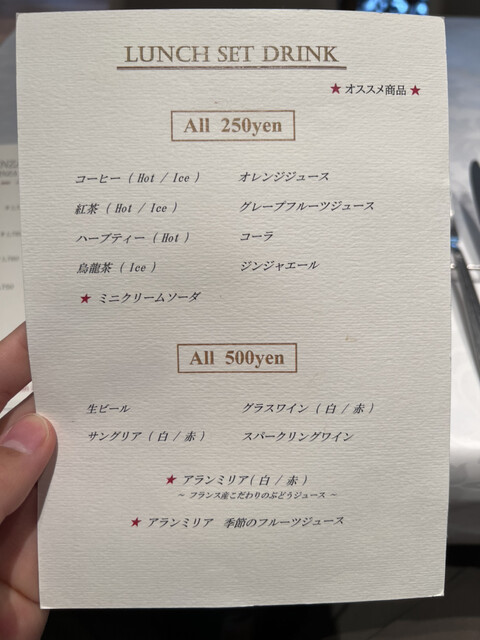 LUNCH SET DRINK
★ オススメ商品 ★
All 250yen
コーヒー ( Hot / Ice ) オレンジジュース
紅茶 ( Hot / Ice ) グレープフルーツジュース
ハーブティー ( Hot ) コーラ
烏龍茶 ( Ice ) ジンジャエール
★ ミニクリームソーダ
All 500yen
生ビール グラスワイン ( 白 / 赤 )
サングリア ( 白 / 赤 ) スパークリングワイン
★ アランミリア( 白 / 赤 )
~ フランス産こだわりのぶどうジュース ~
★ アランミリア 季節のフルーツジュース